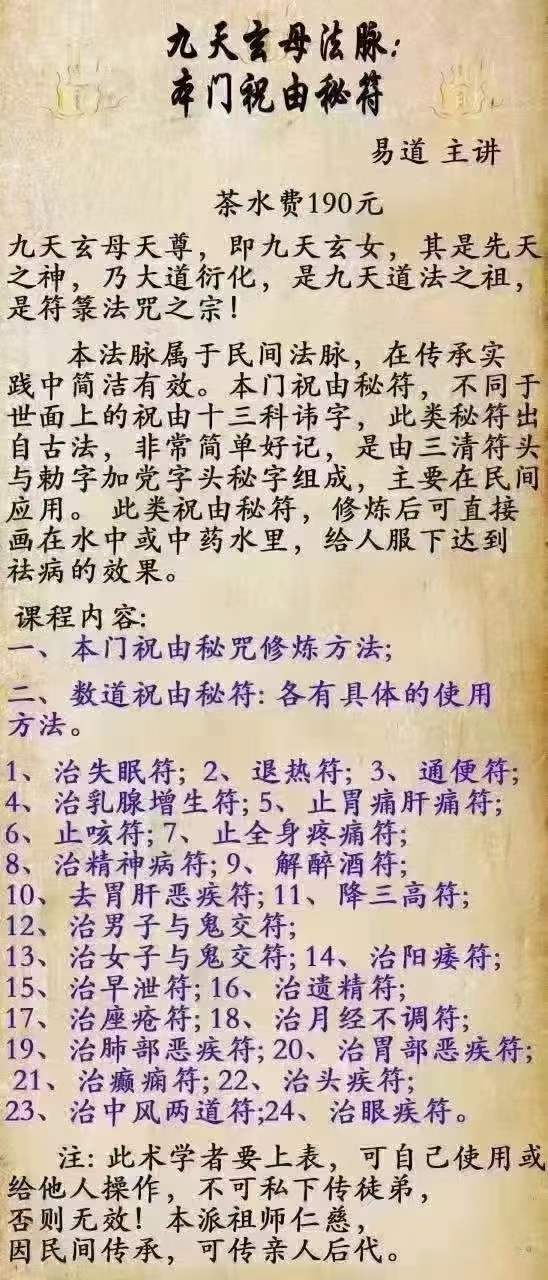 九天玄母法脉：
本门祝由秘符
易道 主讲
茶水费190元
九天玄母天尊，即九天玄女，其是先天
之神，乃大道衍化，是九天道法之祖，
是符箓法咒之宗！
本法脉属于民间法脉，在传承实
践中简洁有效。本门祝由秘符，不同于
世面上的祝由十三科讳字，此类秘符出
自古法，非常简单好记，是由三清符头
与勅字加党字头秘字组成，主要在民间
应用。 此类祝由秘符，修炼后可直接
画在水中或中药水里，给人服下达到
祛病的效果。
课程内容:
一、本门祝由秘咒修炼方法;
二、数道祝由秘符: 各有具体的使用
方法。
1、治失眠符; 2、退热符; 3、通便符;
4、治乳腺增生符; 5、止胃痛肝痛符;
6、止咳符; 7、止全身疼痛符;
8、治精神病符; 9、解醉酒符;
10、去胃肝恶疾符; 11、降三高符;
12、治男子与鬼交符;
13、治女子与鬼交符; 14、治阳痿符;
15、治早泄符; 16、治遗精符;
17、治座疮符; 18、治月经不调符;
19、治肺部恶疾符; 20、治胃部恶疾符;
21、治癫痫符; 22、治头疾符;
23、治中风两道符;24、治眼疾符。
注: 此术学者要上表，可自己使用或
给他人操作，不可私下传徒弟，
否则无效！本派祖师仁慈，
因民间传承，可传亲人后代。